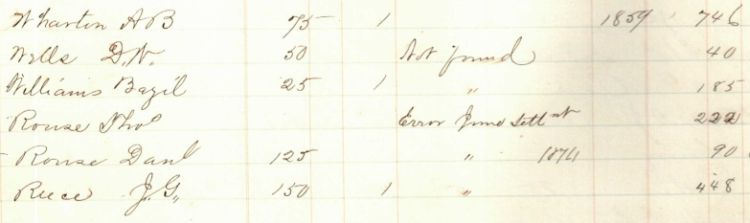 Wharton A B 75 1 1859 746
Wells D.N. 50 Not found 40
Williams Bazil 25 1 " 185
Rouse Thos Error Settmt 222
Rouse Danl 125 " 1874 90
Reece J.G. 150 1 " 448